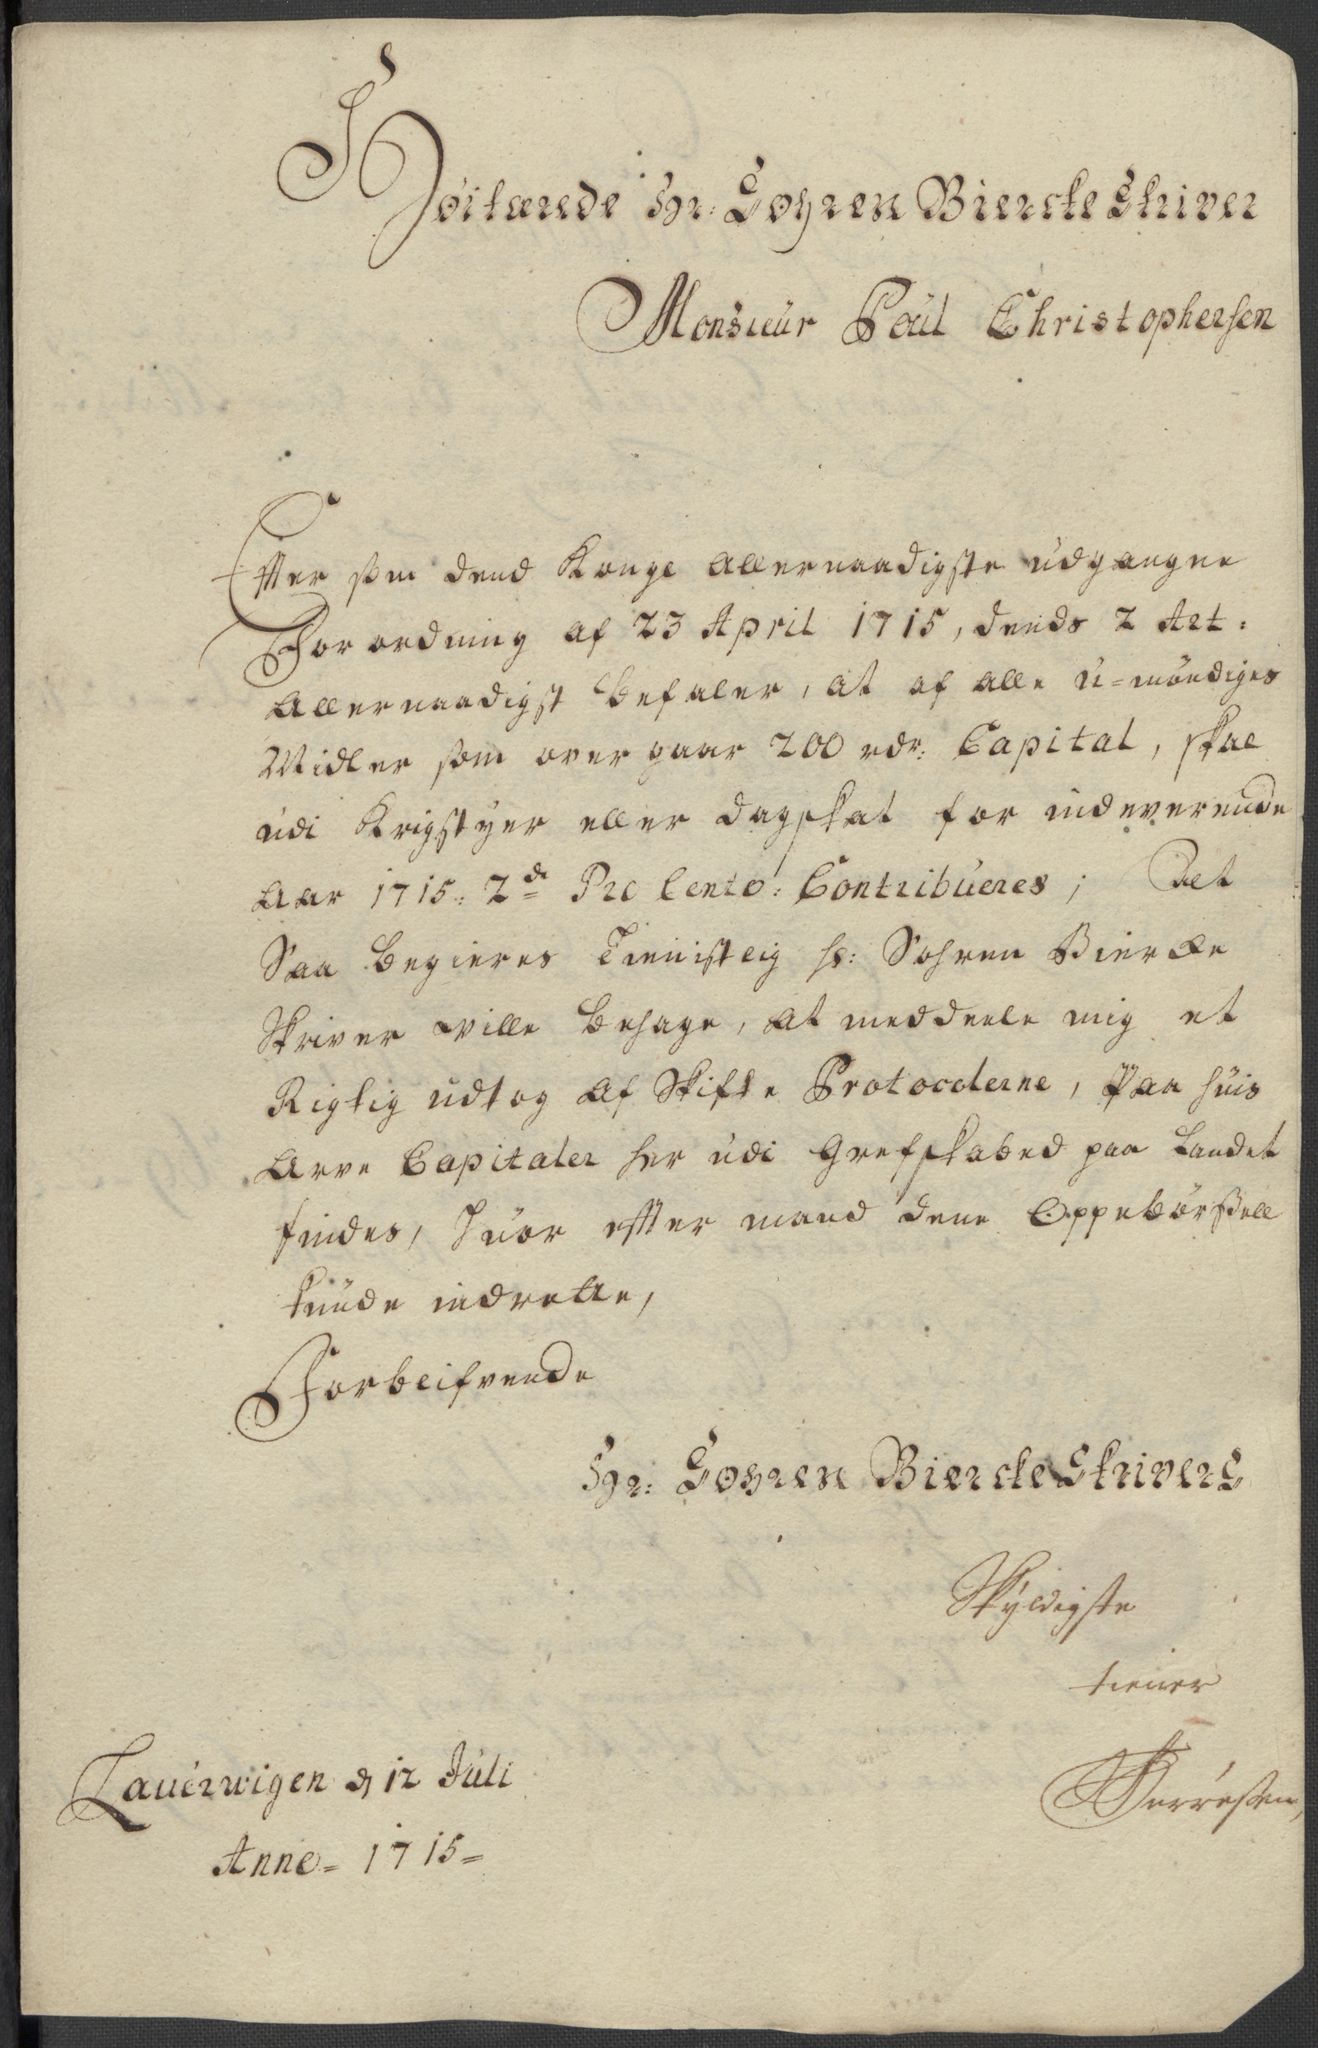 Höitærede Hr: Sohren Biercke Skriver
Monsieur Poül Christophersen
Efter som dend Konge allernaadigste üdgangne
Forordning af 23 April 1715, dends 2 Art:
allernaadigst befaler, at af alle ü=möndiges
Midler som over gaar 200 rdr: Capital, skal
üdi Krigstyer eller dagskat for indeverende
Aar 1715: 2de Pro Cento: Contribüeres; Det
Saa begieres Tienistlig hr: Sohren Biercke
Skriver ville behage, at meddeele mig et
Rigtig üdtog af Skifte Protocolerne, Paa hüis
Arve Capitaler her üdi Grefskabed paa Landet
findes, hüor efter mand dene Oppebörssell
künde indrette,
Forbeifvende
Hr: Sohren Biercke Skrivers
Skÿldigste
tiener
Lauerwigen d 12 Jüli
Anno= 1715=